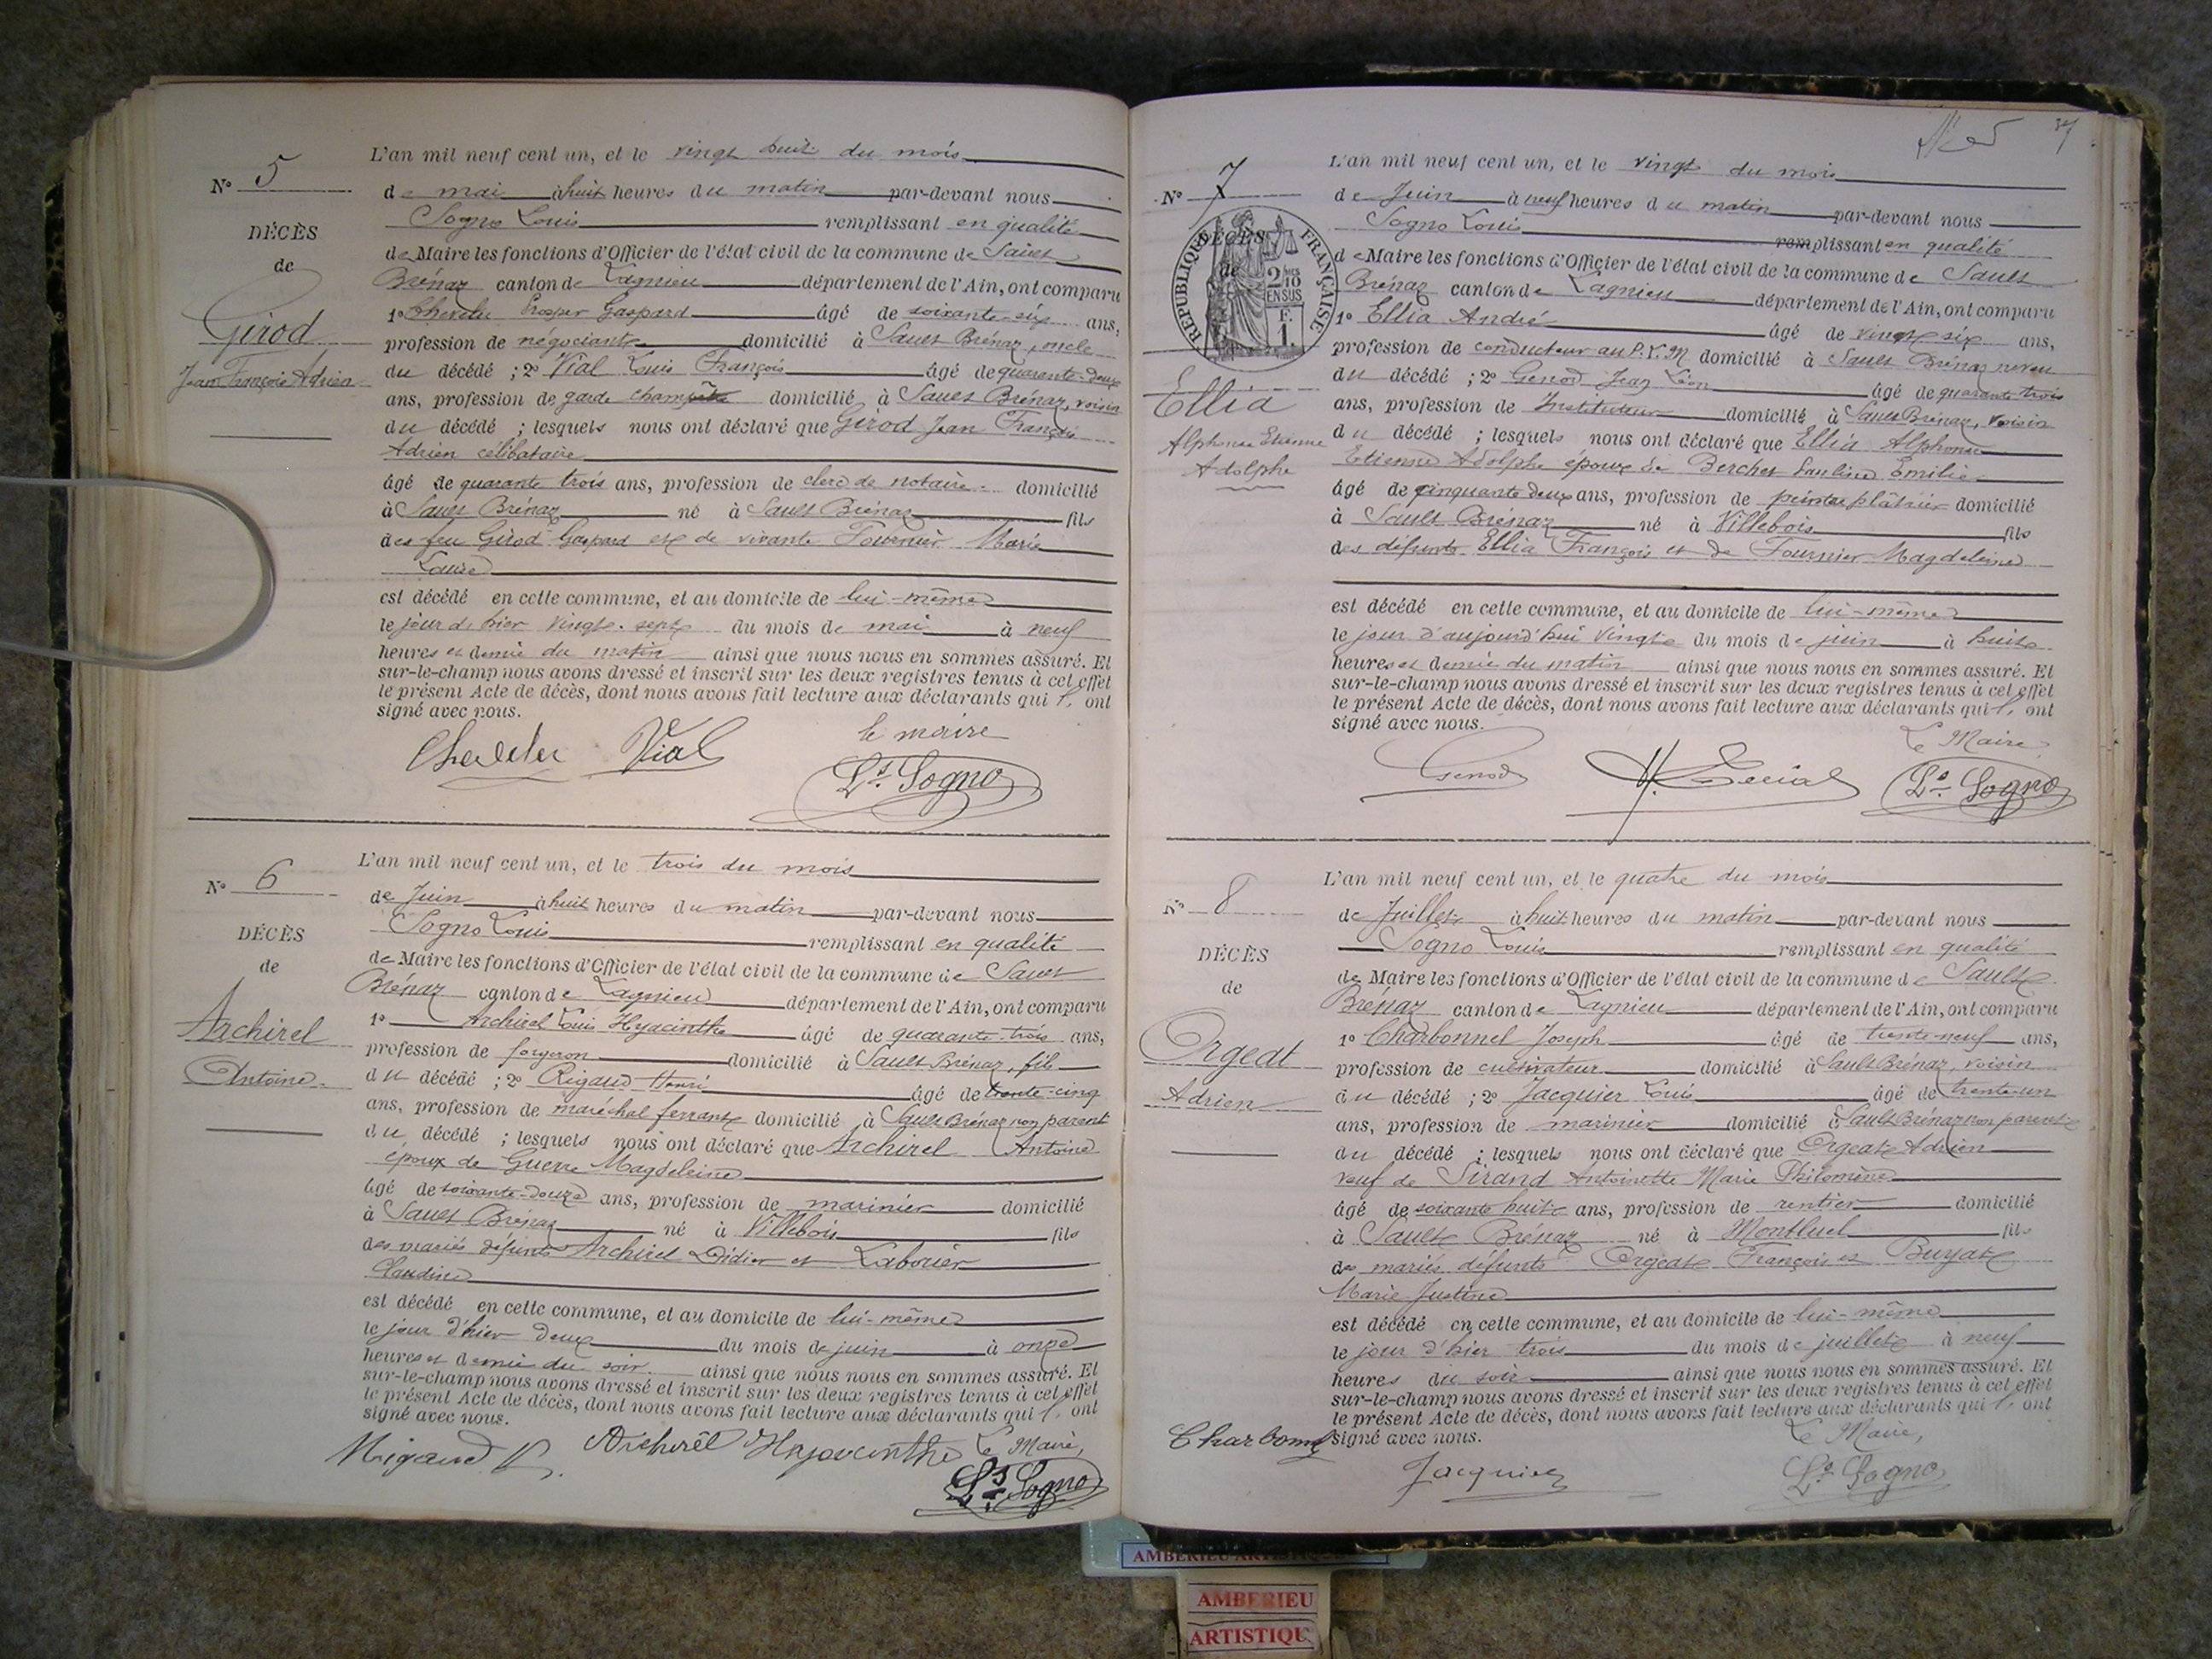 N° 5
DÉCÈS
de
Girod
Jean François Adrien
L'an mil neuf cent un, et le vingt huit du mois
de mai à huit heures du matin par-devant nous
Sogno Louis remplissant en qualité
de Maire les fonctions d'Officier de l'état civil de la commune de Sault
Brénaz canton de Lagnieu département de l'Ain, ont comparu
1° Prosper Gaspard âgé de soixante-six ans,
profession de négociant domicilié à Sault Brénaz, oncle
du décédé ; 2° Vial Louis François âgé de quarante-deux
ans, profession de garde champêtre domicilié à Sault Brénaz, voisin
du décédé ; lesquels nous ont déclaré que Girod Jean François
Adrien célibataire
âgé de quarante trois ans, profession de clerc de notaire domicilié
à Sault Brénaz né à Sault Brénaz fils
des feu Girod Gaspard et de vivante Fournier Marie
Louise
est décédé en cette commune, et au domicile de lui-même
le jour de hier vingt-sept du mois de mai à neuf
heures et demie du matin ainsi que nous nous en sommes assuré. Et
sur-le-champ nous avons dressé et inscrit sur les deux registres tenus à cet effet
le présent Acte de décès, dont nous avons fait lecture aux déclarants qui l' ont
signé avec nous.
le maire
Vial
Ls Sogno
N° 6
DÉCÈS
de
Archirel
Antoine
L'an mil neuf cent un, et le trois du mois
de Juin à huit heures du matin par-devant nous
Sogno Louis remplissant en qualité
de Maire les fonctions d'Officier de l'état civil de la commune de Sault
Brénaz canton de Lagnieu département de l'Ain, ont comparu
1° Archirel Louis Hyacinthe âgé de quarante-trois ans,
profession de forgeron domicilié à Sault Brénaz, fils
du décédé ; 2° Rigaud Henri âgé de trente-cinq
ans, profession de maréchal ferrant domicilié à Sault Brénaz non parent
du décédé ; lesquels nous ont déclaré que Archirel Antoine
époux de Guerre Magdeleine
âgé de soixante-douze ans, profession de marinier domicilié
à Sault Brénaz né à Villebois fils
des mariés défunts Archirel Didier et Labouier
Claudine
est décédé en cette commune, et au domicile de lui-même
le jour d'hier deux du mois de juin à onze
heures et demie du soir ainsi que nous nous en sommes assuré. Et
sur-le-champ nous avons dressé et inscrit sur les deux registres tenus à cet effet
le présent Acte de décès, dont nous avons fait lecture aux déclarants qui l' ont
signé avec nous.
Rigaud H. Archirel Hyacinthe Le Maire,
Ls Sogno
37
N° 7
DÉCÈS
de
REPUBLIQUE FRANÇAISE
2/10 EN SUS
F. 1.
Ellia
Alphonse Etienne
Adolphe
L'an mil neuf cent un, et le vingt du mois
de Juin à neuf heures du matin par-devant nous
Sogno Louis remplissant en qualité
de Maire les fonctions d'Officier de l'état civil de la commune de Sault
Brénaz canton de Lagnieu département de l'Ain, ont comparu
1° Ellia André âgé de vingt six ans,
profession de conducteur au P.L.M domicilié à Sault Brénaz neveu
du décédé ; 2° Genod Jean Léon âgé de quarante trois
ans, profession de Instituteur domicilié à Sault Brénaz, voisin
du décédé ; lesquels nous ont déclaré que Ellia Alphonse
Etienne Adolphe époux de Berchet Pauline Emilie
âgé de cinquante deux ans, profession de peintre plâtrier domicilié
à Sault Brénaz né à Villebois fils
des défunts Ellia François et de Fournier Magdeleine
est décédé en cette commune, et au domicile de lui-même
le jour d'aujourd'hui vingt du mois de juin à huit
heures et demie du matin ainsi que nous nous en sommes assuré. Et
sur-le-champ nous avons dressé et inscrit sur les deux registres tenus à cet effet
le présent Acte de décès, dont nous avons fait lecture aux déclarants qui l' ont
signé avec nous.
Le Maire
Genod
Ls Sogno
N° 8
DÉCÈS
de
Orgeat
Adrien
L'an mil neuf cent un, et le quatre du mois
de Juillet à huit heures du matin par-devant nous
Sogno Louis remplissant en qualité
de Maire les fonctions d'Officier de l'état civil de la commune de Sault
Brénaz canton de Lagnieu département de l'Ain, ont comparu
1° Charbonnel Joseph âgé de trente-neuf ans,
profession de cultivateur domicilié à Sault Brénaz, voisin
du décédé ; 2° Jacquier Louis âgé de trente-un
ans, profession de marinier domicilié à Sault Brénaz non parent
du décédé ; lesquels nous ont déclaré que Orgeat Adrien
veuf de Sirand Antoinette Marie Philomène
âgé de soixante huit ans, profession de rentier domicilié
à Sault Brénaz né à Montluel fils
des mariés défunts Orgeat François et Buyat
Marie Justine
est décédé en cette commune, et au domicile de lui-même
le jour d'hier trois du mois de juillet à neuf
heures du soir ainsi que nous nous en sommes assuré. Et
sur-le-champ nous avons dressé et inscrit sur les deux registres tenus à cet effet
le présent Acte de décès, dont nous avons fait lecture aux déclarants qui l' ont
signé avec nous.
Le Maire,
Charbonnel
Jacquier
Ls Sogno
AMBERIEU
AMBERIEU
ARTISTIQU